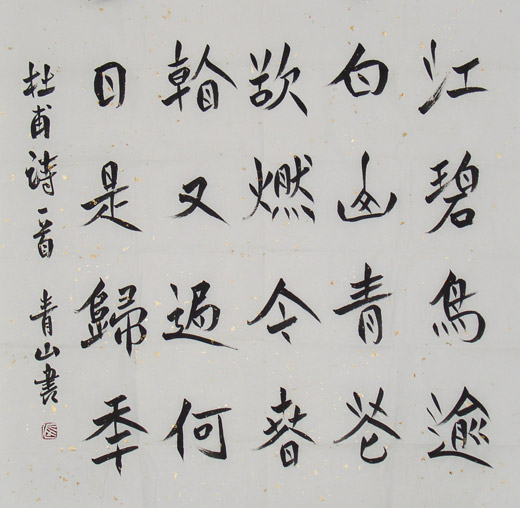 江碧鳥逾
白山青花
欲燃今春
看又過何
日是歸秊
杜甫詩一首 青山書